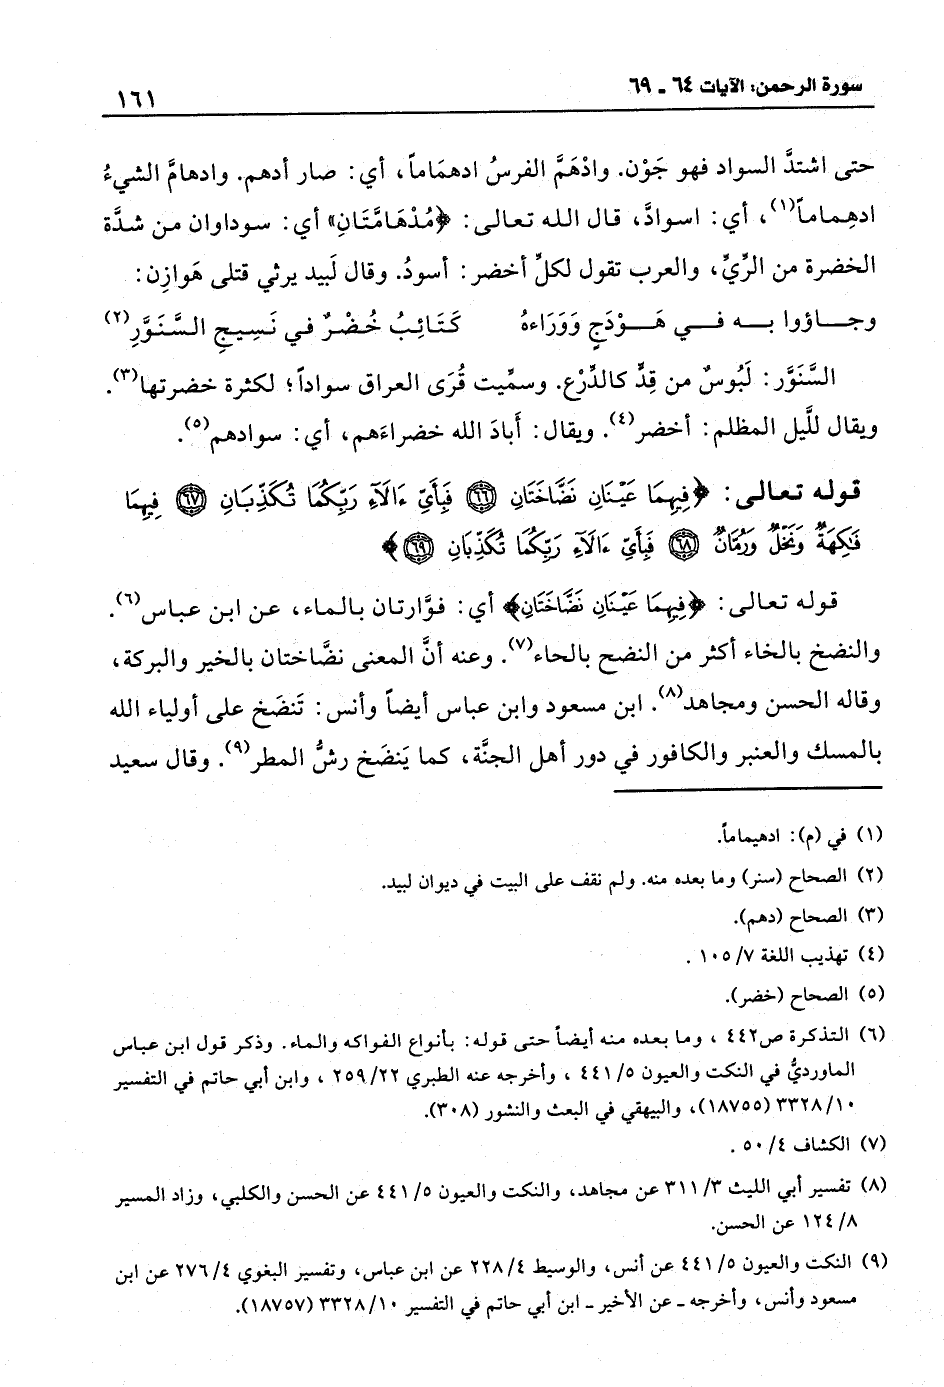 سورة الرحمن: الآيات ٦٤ ـ ٦٩
١٦١
حتى اشتدَّ السواد فهو جَوْن. وادْهَمَّ الفرسُ ادهمَاماً، أي: صار أدهم. وادهامَّ الشيءُ
ادهِماماً(١)، أي: اسوادَّ، قال الله تعالى: ﴿مُدْهَامَّتَانِ﴾ أي: سوداوان من شدَّة
الخضرة من الرِّيِّ، والعرب تقول لكلِّ أخضر: أسودُ. وقال لَبيد يرثي قتلى هَوازِن:
وجـاؤوا بـه فـي هَـوْدَجٍ وَوَرَاءهُ كَتَائِبُ خُضْرٌ في نَسِيجِ السَّنَوَّرِ(٢)
السَّنَوَّر: لَبُوسٌ من قِدٍّ كالدِّرْع. وسمِّيت قُرَى العراق سواداً؛ لكثرة خضرتها(٣).
ويقال للَّيل المظلم: أخضر(٤). ويقال: أَبادَ الله خضراءَهم، أي: سوادهم(٥).
قوله تعالى: ﴿فِيهِمَا عَيْنَانِ نَضَّاخَتَانِ ٦٦ فَبِأَيِّ ءَالَآءِ رَبِّكُمَا تُكَذِّبَانِ ٦٧ فِيهِمَا
فَٰكِهَةٌ وَنَخْلٌ وَرُمَّانٌ ٦٨ فَبِأَيِّ ءَالَآءِ رَبِّكُمَا تُكَذِّبَانِ ٦٩﴾
قوله تعالى: ﴿فِيهِمَا عَيْنَانِ نَضَّاخَتَانِ﴾ أي: فوَّارتان بالماء، عن ابن عباس(٦).
والنضخ بالخاء أكثر من النضح بالحاء(٧). وعنه أنَّ المعنى نضَّاختان بالخير والبركة،
وقاله الحسن ومجاهد(٨). ابن مسعود وابن عباس أيضاً وأنس: تَنضَخ على أولياء الله
بالمسك والعنبر والكافور في دور أهل الجنَّة، كما يَنضَخ رشُّ المطر(٩). وقال سعيد
(١) في (م): ادهيماماً.
(٢) الصحاح (سنر) وما بعده منه. ولم نقف على البيت في ديوان لبيد.
(٣) الصحاح (دهم).
(٤) تهذيب اللغة ٧/ ١٠٥ .
(٥) الصحاح (خضر).
(٦) التذكرة ص٤٤٢ ، وما بعده منه أيضاً حتى قوله: بأنواع الفواكه والماء. وذكر قول ابن عباس
الماورديُّ في النكت والعيون ٥/ ٤٤١ ، وأخرجه عنه الطبري ٢٢/ ٢٥٩ ، وابن أبي حاتم في التفسير
١٠/ ٣٣٢٨ (١٨٧٥٥)، والبيهقي في البعث والنشور (٣٠٨).
(٧) الكشاف ٤/ ٥٠ .
(٨) تفسير أبي الليث ٣/ ٣١١ عن مجاهد، والنكت والعيون ٥/ ٤٤١ عن الحسن والكلبي، وزاد المسير
٨/ ١٢٤ عن الحسن.
(٩) النكت والعيون ٥/ ٤٤١ عن أنس، والوسيط ٤/ ٢٢٨ عن ابن عباس، وتفسير البغوي ٤/ ٢٧٦ عن ابن
مسعود وأنس، وأخرجه ـ عن الأخير ـ ابن أبي حاتم في التفسير ١٠/ ٣٣٢٨ (١٨٧٥٧).